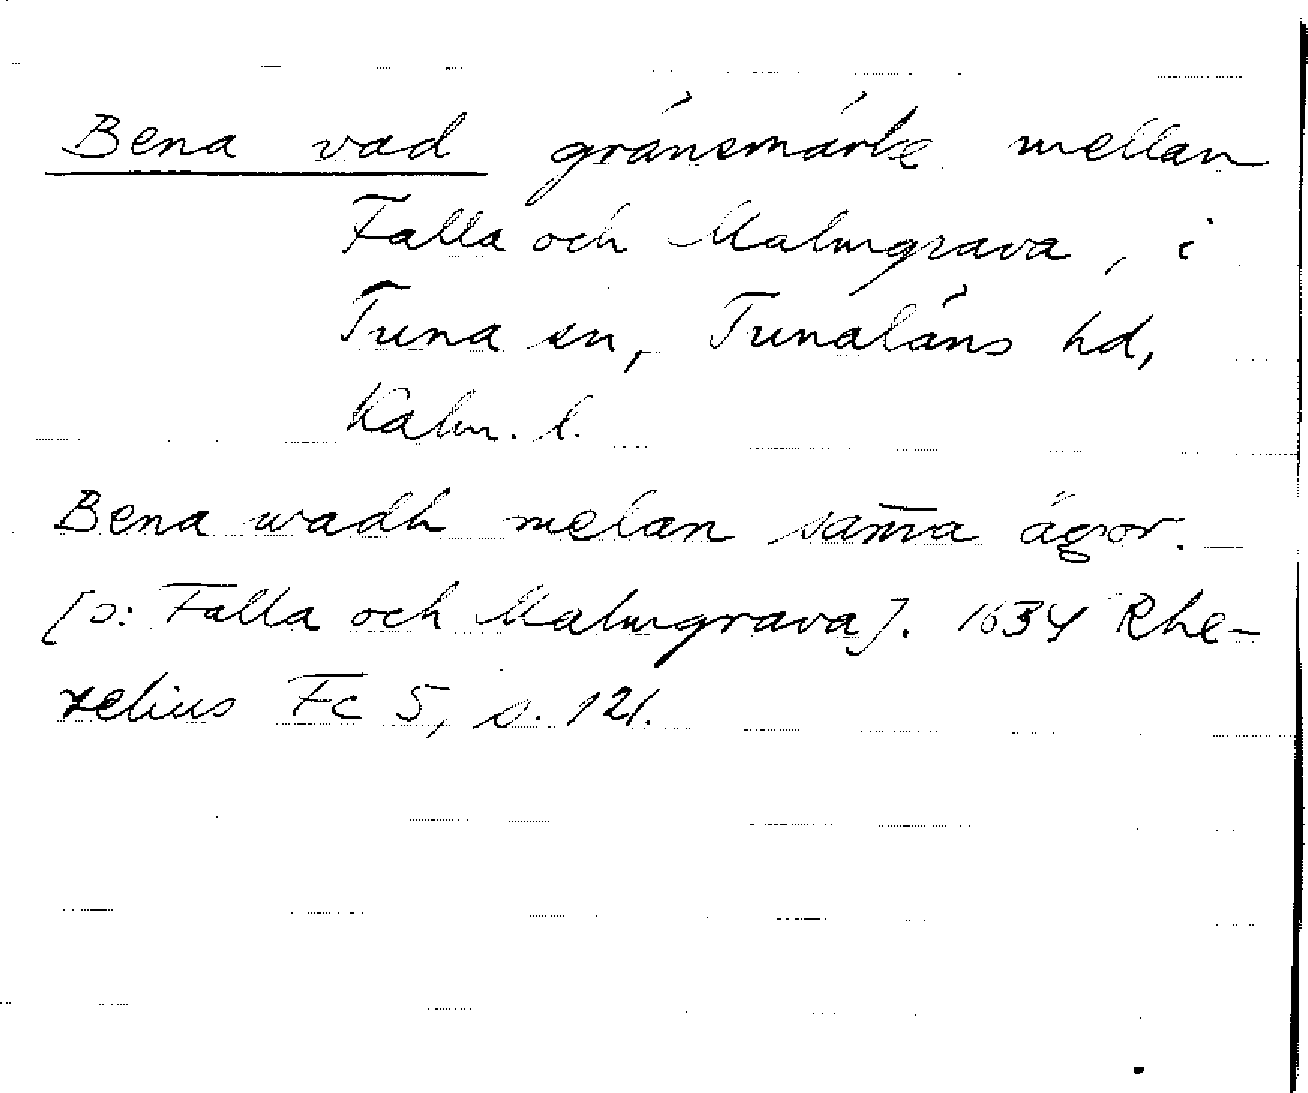 Bena vad gränsmärke mellan
Falla och Malmgrava, i
Tuna sn, Tunaläns hd,
Kalm. l.
Bena wadh melan sam̄a ägor.
[ɔ: Falla och Malmgrava]. 1634 Rhe-
zelius Fc 5, s. 121.